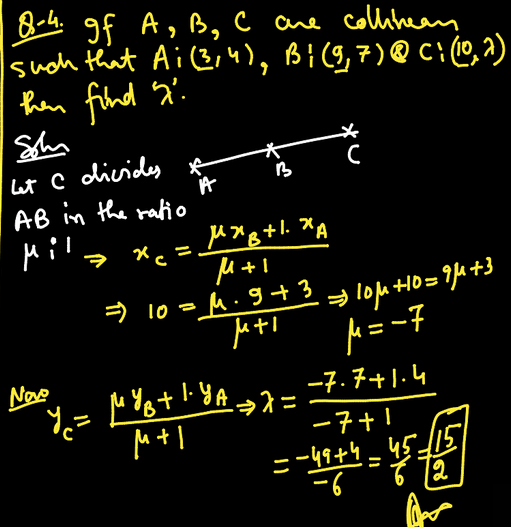 Q-4. If A, B, C are collinear
such that A:(3,4), B:(9,7) & C:(10,λ)
then find 'λ'.
Soln
A B C
Let C divides
AB in the ratio
μ:1 ⇒ x_C = (μx_B + 1·x_A)/(μ+1)
⇒ 10 = (μ·9+3)/(μ+1) ⇒ 10μ+10=9μ+3
μ = -7
Now y_C = (μy_B + 1·y_A)/(μ+1) ⇒ λ = (-7·7+1·4)/(-7+1)
= (-49+4)/(-6) = 45/6 = 15/2
Ans